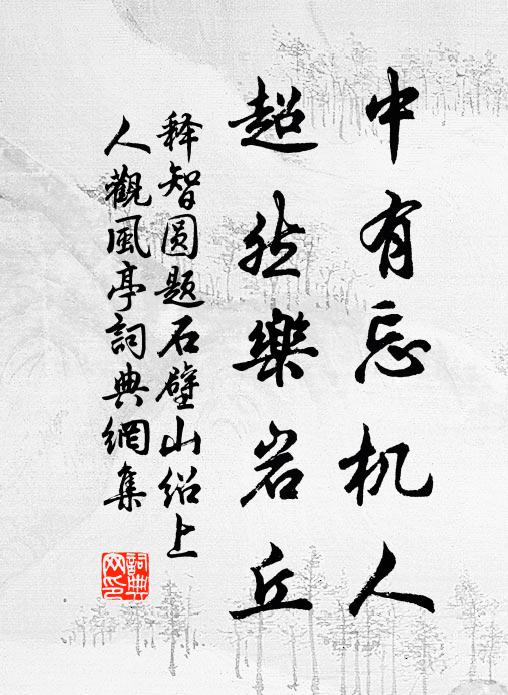 中有忘机人
超然樂岩丘
释智圆题石壁山绍上
人觀風亭詞典網集
詞典网印